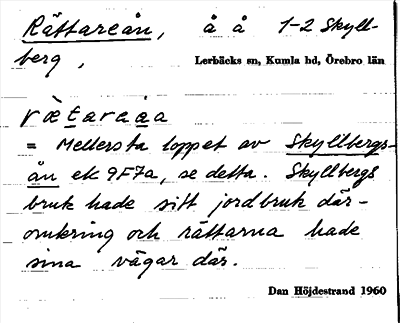 Rättareån, å å 1-2 Skyll-
berg,
Lerbäcks sn, Kumla hd, Örebro län
ræ̀taraåa
= Mellersta loppet av Skyllbergs-
ån ek 9F7a, se detta. Skyllbergs
bruk hade sitt jordbruk där-
omkring och rättarna hade
sina vägar där.
Dan Höjdestrand 1960